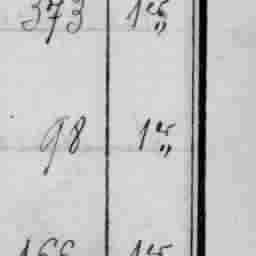 373 1er „
98 1er „
166 1er